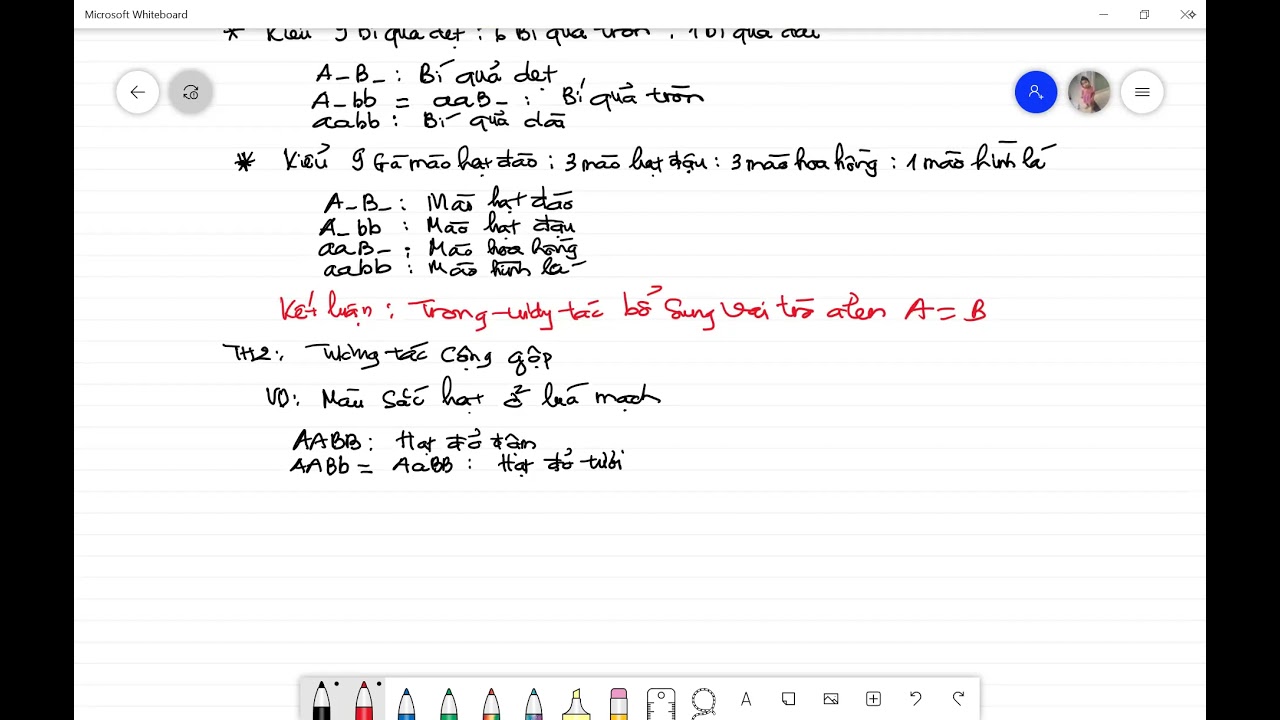 Microsoft Whiteboard
* Kiểu 9 Bí quả dẹt : 6 Bí quả tròn : 1 bí quả dài
A_B_ : Bí quả dẹt
A_bb = aaB_ : Bí quả tròn
aabb : Bí quả dài
* Kiểu 9 Gà mào hạt đào : 3 mào hạt đậu : 3 mào hoa hồng : 1 mào hình lá
A_B_ : Mào hạt đào
A_bb : Mào hạt đậu
aaB_ : Mào hoa hồng
aabb : Mào hình lá
Kết luận : Trong tương tác bổ sung vai trò alen A = B
TH2: Tương tác cộng gộp
VD: Màu sắc hạt ở lúa mạch
AABB : Hạt đỏ đậm
AABb = AaBB : Hạt đỏ tươi